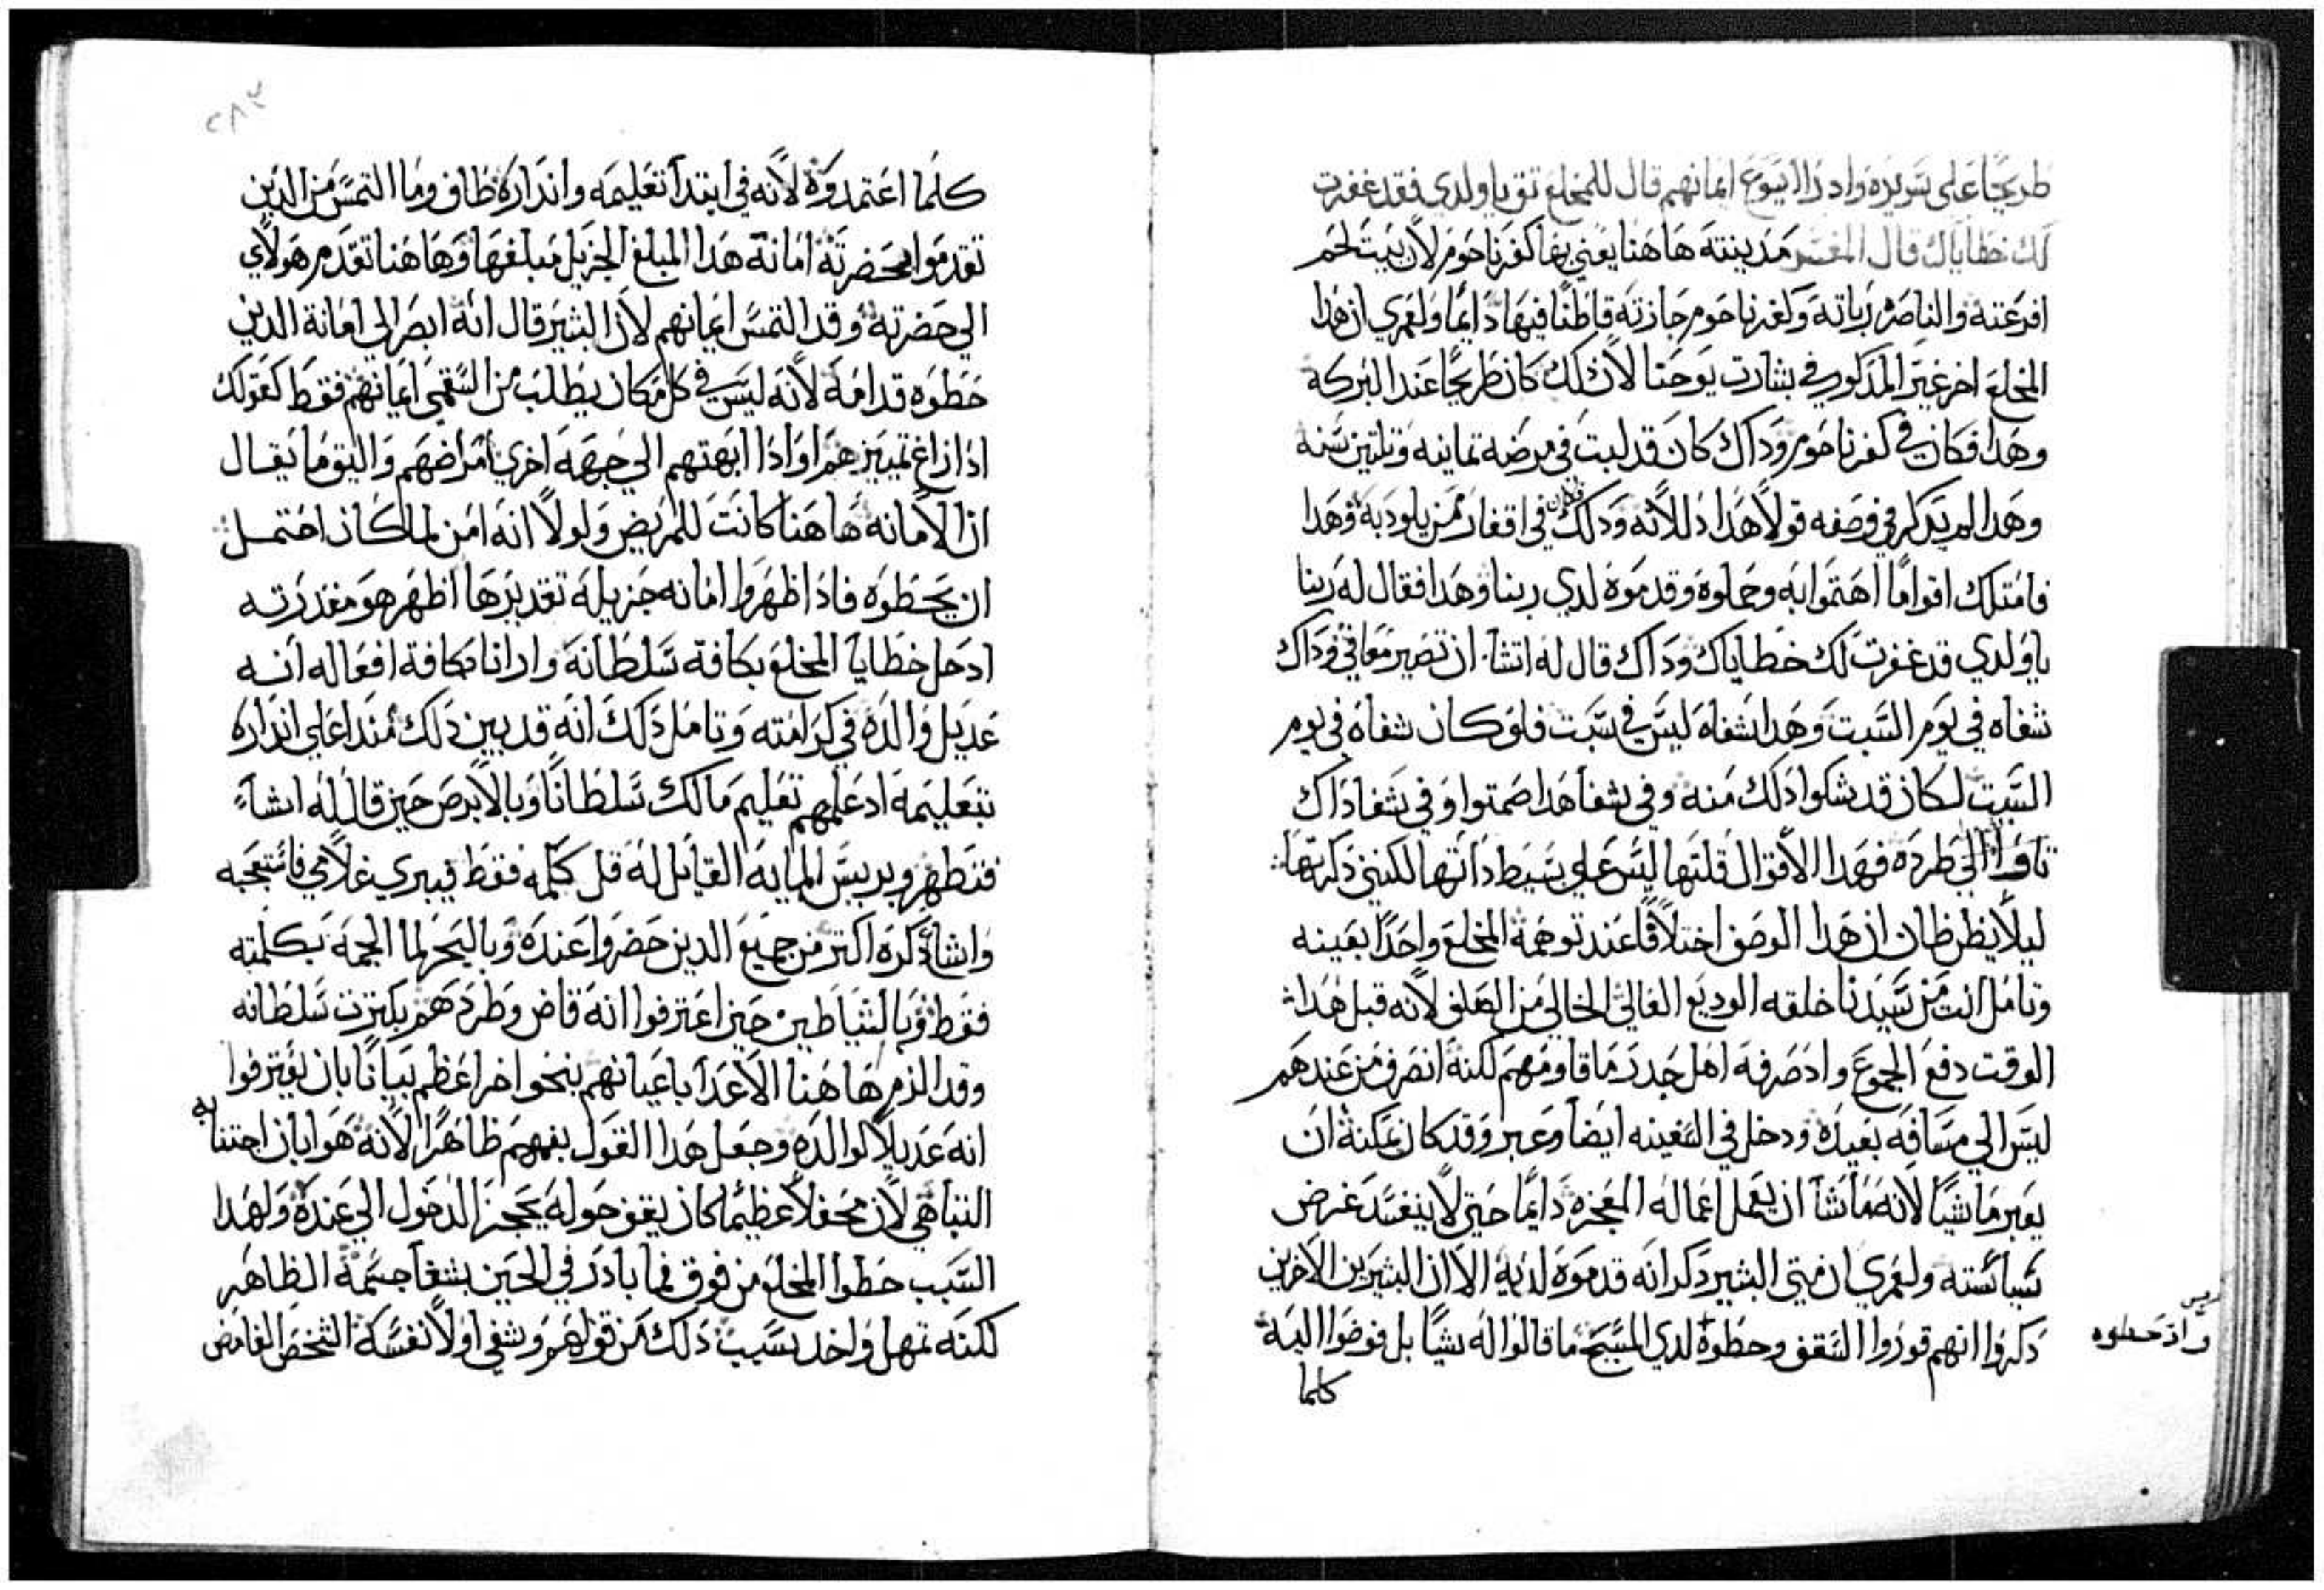 طريحًا على سريره واد راا يسوع ايمانهم قال للمخلع تق ياولدي فقد غفرت
لك خطاياك قال المفسر مدينته هاهنا يعني بها كفرناحوم لان بيت لحم
افرعته والناصره رباته وكفرناحوم جازته قاطنًا فيها دايمًا ولعمري ان هدا
المخلع اخر غير المدكور في بشارت يوحنا لان دلك كان طريحًا عند البركه
وهدا فكان في كفرناحوم وداك كان قد لبت في مرضه تمانيه وتلتين سنه
وهدا لم يدكر في وصفه قولًا هدا دللانه ودلك فكان في اقفار ممن يلود به وهدا
فامتلك اقوامًا اهتموا به وحملوه وقدموه لدي ربنا وهدا فقال له ربنا
ياولدي قد غفرت لك خطاياك وداك قال له اتشا ان تصير معافي وداك
شفاه في يوم السبت وهدا شفاه ليس في سبت فلو كان شفاه في يوم
السبت لكان قد شكوا دلك منه وفي شفا هدا صمتوا وفي شفا داك
تافوا الي طرده فهدا الاقوال قلتها ليس علي بسيط داتها لكنني دكرتها
ليلا يظن ظان ان هدا الوصف اختلاقًا عند توهمه المخلع واحدًا بعينه
وتامل انت من سيدنا خلقه الوديع الغالي الخالي من الصلف لانه قبل هدا
الوقت دفع الجموع واد صرفه اهل جدر ما قاومهم لكنه انصرف من عندهم
ليس الي مسافه بعيده ودخل في السفينه ايضًا وعبر وقد كان يمكنه ان
يعبر ماشيًا لانه ما شا ان يعمل اعماله المعجزه دايمًا حتي لا ينفسد غرض
سياسته ولعمري ان متي البشير دكر انه قدموه لديه الا ان البشيرين الاخرين
دكروا انهم قوروا السقف وحطوه لدي المسيح ما قالوا له شيًا بل فوضوا اليه
واذ حطوه
كلما
٢٨٢
كلما اعتمدوه لانه في ابتدآ تعليمه وانداره طاف وما التمس من الدين
تقدموا بحضرته امانة هدا المبلغ الجزيل مبلغها وهاهنا تقدم هولاي
الي حضرته وقد التمس ايمانهم لان البشير قال انه ابصر الي امانة الدين
حطوه قدامه لانه ليس في كل مكان يطلب من السقمي ايمانهم فقط كقولك
ادا زاغ تمييزهم او ادا ابهتهم الي جهه اخري امراضهم واليق ما يقال
ان الامانه هاهنا كانت للمريض ولولا انه امن لما كان احتمل
ان يحطوه فاد اظهروا امانه جزيله تقديرها اظهر هو مقدرته
اد حل خطايا المخلع بكافة سلطانه وارانا بكافة افعاله انه
عديل والده في كرامته وتامل دلك انه قد بين دلك مند اعلي انداره
بتعليمه اد علمهم تعليم مالك سلطانًا وبالابرص حين قال له اشآء
فتطهر وبريس المايه القايل له قل كلمه فقط فيبري غلامي فاستعجبه
واشا دكره اكتر من جميع الدين حضروا عنده وباليحر لما الجمه بكلمته
فقط وبالشياطين حين اعترفوا انه قاض وطردهم بكترت سلطانه
وقد الزم هاهنا الاعدآ باعيانهم بنحو اخر اعظم بيانًا بان يعترفوا
انه عديلًا لوالده وجعل هدا القول بفمهم ظاهرًا لانه هو ابان اجتنابه
التباهي لان محفلًا عظيمًا كان يقف حوله يحجز الدخول الي عنده ولهدا
السبب حطوا المخلع من فوق فما بادر في الحين بشفآ جسمه الظاهر
لكنه تمهل واخد بسبب دلك من قولهم وشفي اولًا نفسه الشخص الغامض